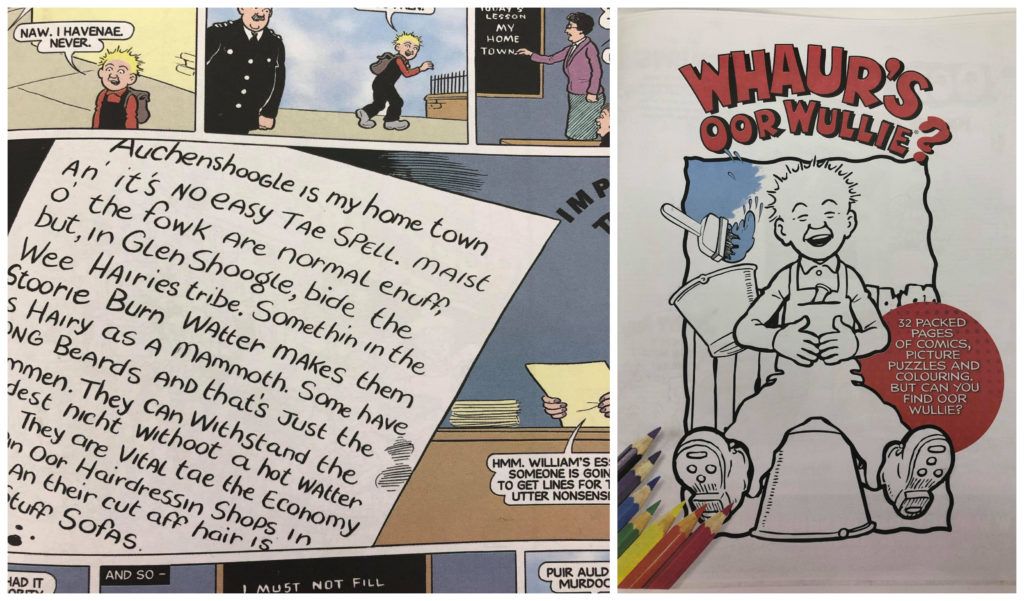 NAW. I HAVENAE.
NEVER.
LESSON
MY
HOME
TOWN.
AUCHENSHOOGLE is my home town
An' it's NO EASY TAE SPELL. MAIST
o' the fowk ARE NORMAL ENUFF,
but, in Glen Shoogle, bide the
Wee HAiries tribe. Somethin in the
Stoorie Burn WAtter makes them
HAiry as a MAMMOTH. Some have
BeARds AND thAt's Just the
They CAN WithstANd the
nicht Withoot a hot WAtter
They ARe VitAL tAe the Economy
Oor HAirdressin Shops, in
An their cut aff hair is
Stuff SofAs.
HMM. WILLIAM'S
SOMEONE IS
TO GET LINES FOR
UTTER
AND SO –
I MUST NOT FILL
PUIR AULD
WHAUR'S
OOR WULLIE?
32 PACKED
PAGES
OF COMICS,
PICTURE
PUZZLES AND
COLOURING.
BUT CAN YOU
FIND OOR
WULLIE?